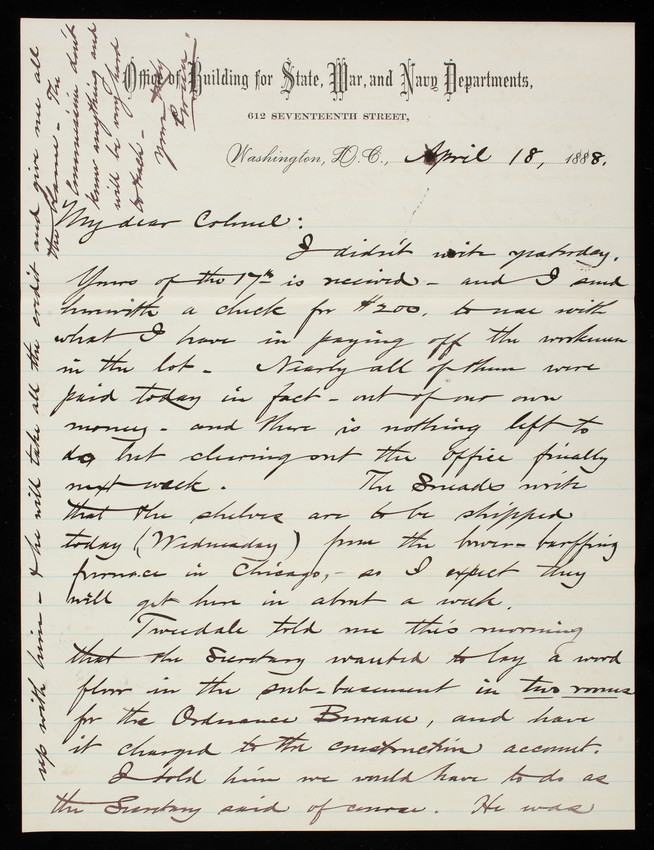 Office of Building for State, War, and Navy Departments,
612 SEVENTEENTH STREET,
Washington, D.C., April 18, 1888.
My dear Colonel:
I didn't write yesterday.
Yours of the 17th is received - and I send
herewith a check for $200. to use with
what I have in paying off the workmen
in the lot - Nearly all of them were
paid today in fact - out of our own
money - and there is nothing left to
do but clearing out the office finally
next week. The Sneads write
that the shelves are to be shipped
today (Wednesday) from the Bower-Barffing
furnace in Chicago, - so I expect they
will get here in about a week.
Tweedale told me this morning
that the Secretary wanted to lay a wood
floor in the sub-basement in two rooms
for the Ordnance Bureau, and have
it charged to the construction account.
I told him we would have to do as
the Secretary said of course. He was
up with him - & he will take all the credit and give me all
the blame - The
Commission don't
know anything and
will be very hard
to
Yours truly